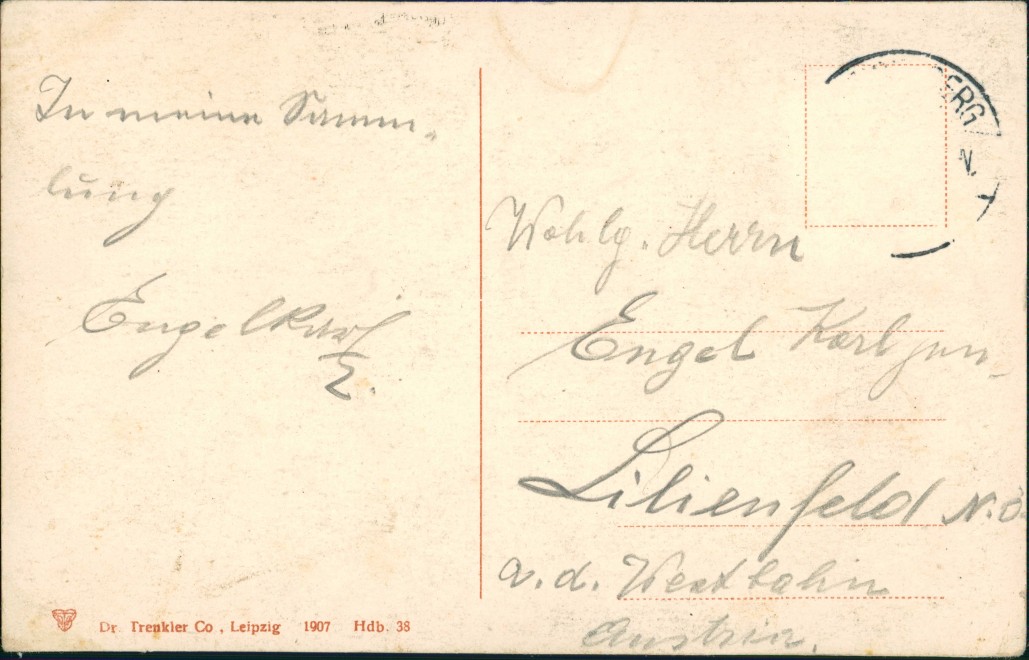 In meine Samm-
lung
Engel Karl
Wohlg. Herrn
Engel Karl jun.
Lilienfeld N.Ö
a. d. Westbahn
Austria.
ERG
N.
Dr. Trenkler Co., Leipzig 1907 Hdb. 38